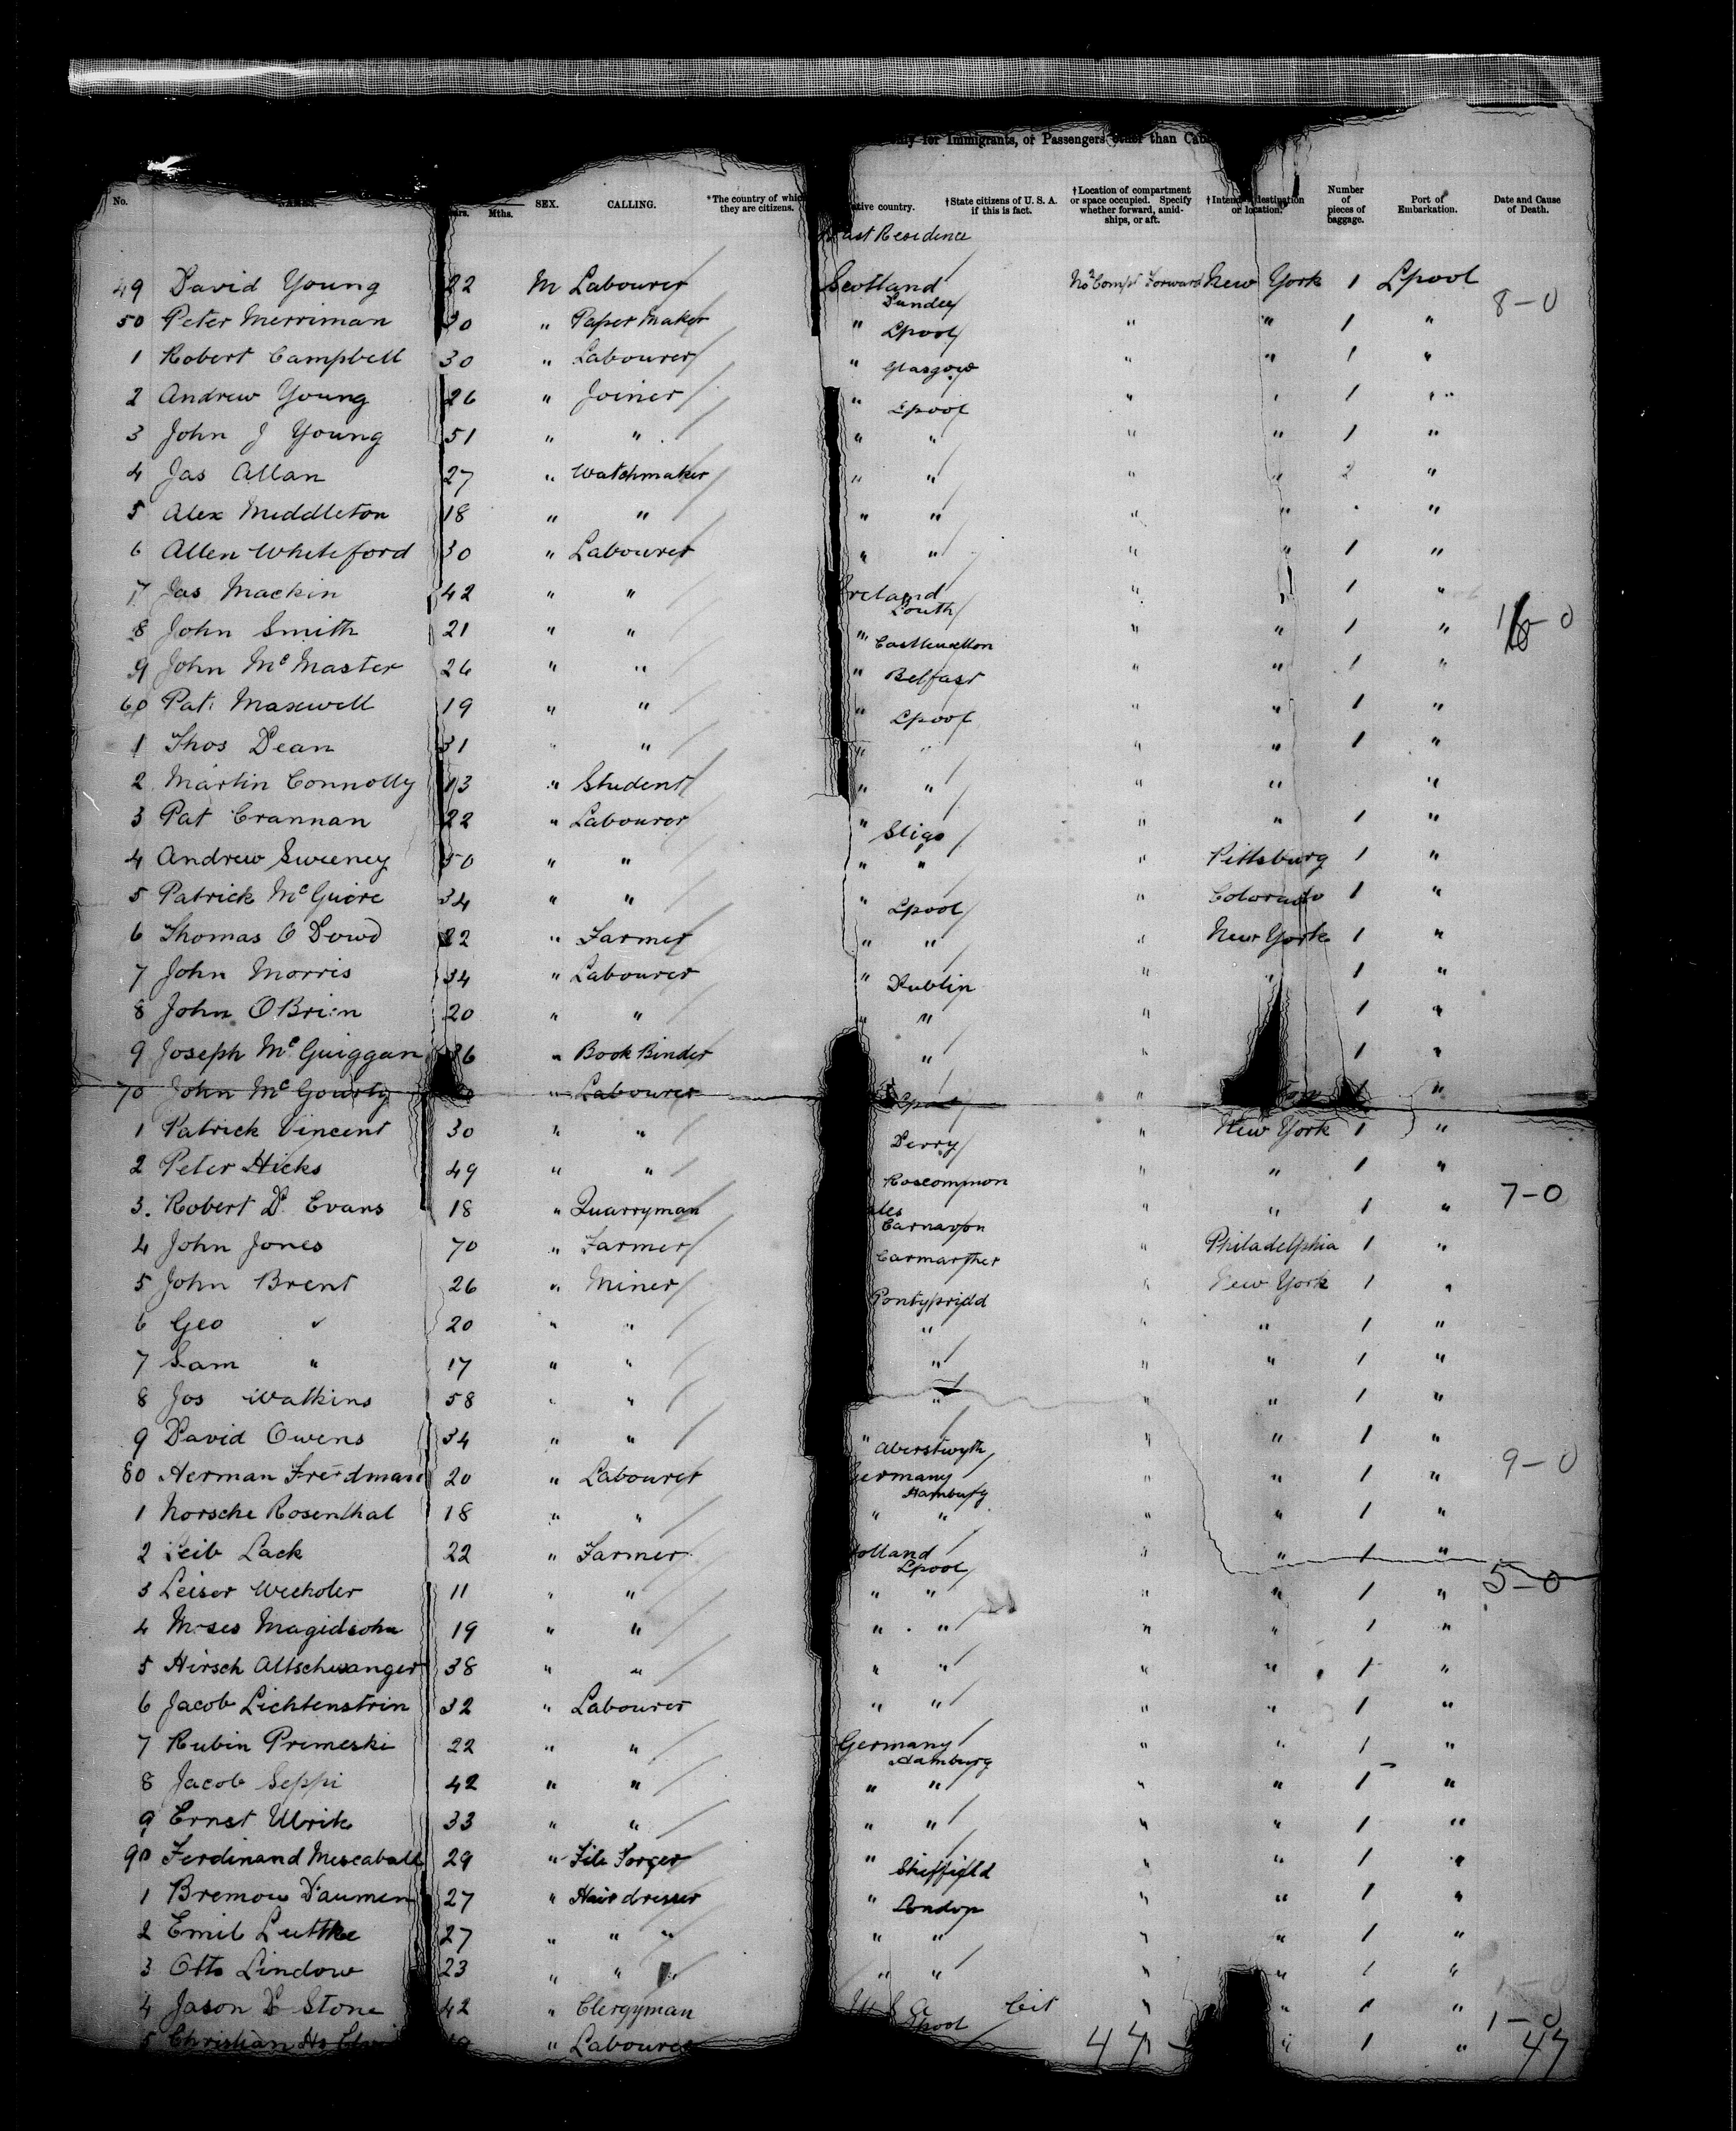 only for Immigrants, or Passengers other than Cab
No. NAMES. Mths. SEX. CALLING. *The country of which they are citizens. Native country. †State citizens of U. S. A. if this is fact. †Location of compartment or space occupied. Specify whether forward, amidships, or aft. †Intended destination or location. Number of pieces of baggage. Port of Embarkation. Date and Cause of Death.
Last Residence
49 David Young 22 M Labourer Scotland Dundee No 2 Compt Forward New York 1 Lpool 8-0
50 Peter Merriman 30 " Paper Maker " Lpool " " 1 "
1 Robert Campbell 30 " Labourer " Glasgow " " 1 "
2 Andrew Young 26 " Joiner " Lpool " " 1 "
3 John J Young 51 " " " " " " 1 "
4 Jas Allan 27 " Watchmaker " " " " 2 "
5 Alex Middleton 18 " " " " " " "
6 Allen Whiteford 30 " Labourer " " " " 1 "
7 Jas Mackin 42 " " Ireland Louth " " 1 "
8 John Smith 21 " " " " " 1 " 16-0
9 John McMaster 26 " " " Belfast " " 1 "
60 Pat Maxwell 19 " " " Lpool " " 1 "
1 Thos Dean 31 " " " " " " 1 "
2 Martin Connolly 13 " Student " " " " "
3 Pat Crannan 22 " Labourer " Sligo " " 1 "
4 Andrew Sweeney 50 " " " " " Pittsburg 1 "
5 Patrick McGuire 34 " " " Lpool " Colorado 1 "
6 Thomas O Dowd 22 " Farmer " " " New York 1 "
7 John Morris 34 " Labourer " Dublin " " 1 "
8 John OBrien 20 " " " " " 1 "
9 Joseph McGuiggan 36 " Book Binder " " 1 "
70 John McGourty " Labourer Lpool " 1 "
1 Patrick Vincent 30 " " Derry " New York 1 "
2 Peter Hicks 49 " " Roscommon " " 1 "
3. Robert D. Evans 18 " Quarryman ales Carnavon " " 1 " 7-0
4 John Jones 70 " Farmer Carmarther " Philadelphia 1 "
5 John Brent 26 " Miner Pontypridd " New York 1 "
6 Geo " 20 " " " " " 1 "
7 Sam " 17 " " " " " 1 "
8 Jos Watkins 58 " " " " " 1 "
9 David Owens 34 " " " Aberstwyth " " 1 "
80 Herman Freidman 20 " Labourer Germany Hamburg " " 1 " 9-0
1 Norsche Rosenthal 18 " " " " " " 1 "
2 Leib Lack 22 " Farmer Holland Lpool " " 1 "
3 Leiser Wecholer 11 " " " " " " 1 " 5-0
4 Moses Magidsohn 19 " " " " " " 1 "
5 Hirsch Altschwanger 38 " " " " " " 1 "
6 Jacob Lichtenstein 32 " Labourer " " " " 1 "
7 Rubin Premeski 22 " " Germany Hamburg " " 1 "
8 Jacob Seppi 42 " " " " " " 1 "
9 Ernst Ulrik 33 " " " " " " 1 "
90 Ferdinand 29 " File Forger " Sheffield " " 1 "
1 Daumen 27 " Hairdresser " London " " 1 "
2 Emil Luttke 27 " " " " " " " 1 "
3 Otto Lindow 23 " " " " " " 1 "
4 Jason D Stone 42 " Clergyman U S A Lpool Cit " " 1 " 1-0
5 Christian 19 " Labourer 47 " 1 " 47